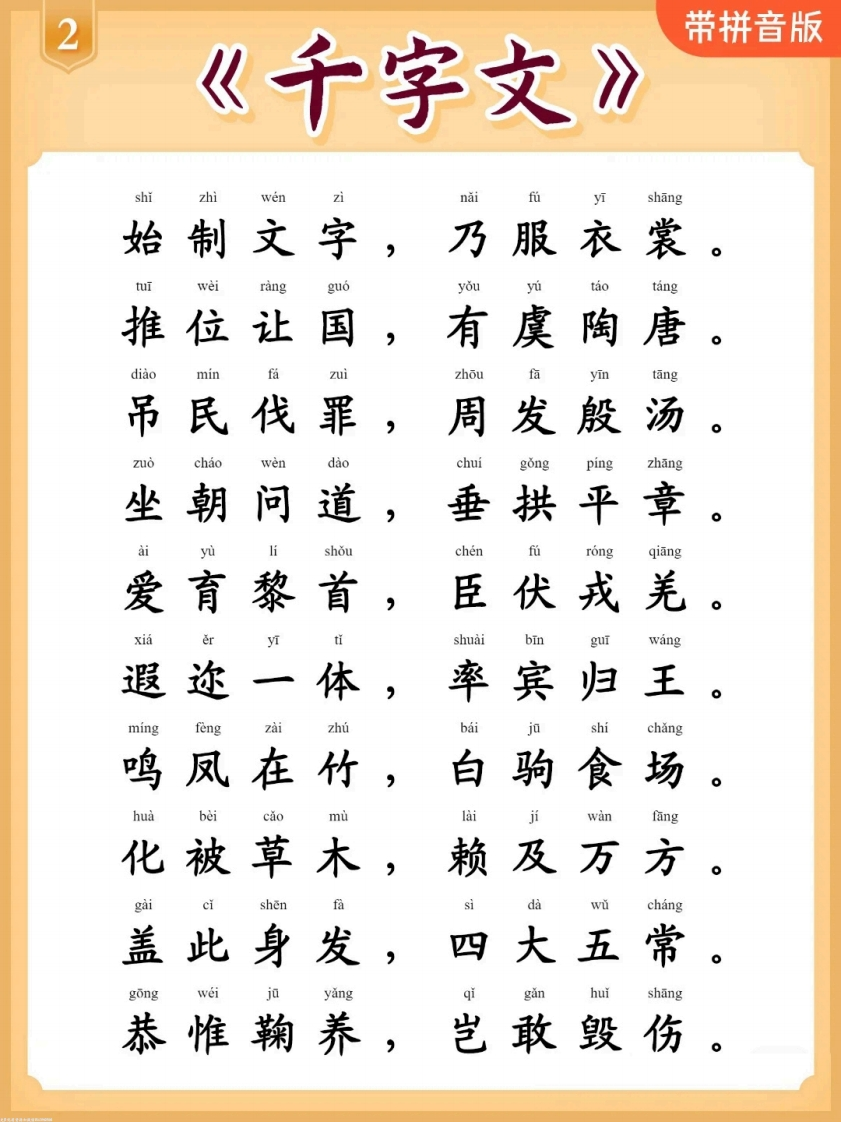 2
带拼音版
《千字文》
shǐ zhì wén zì nǎi fú yī shāng
始制文字，乃服衣裳。
tuī wèi ràng guó yǒu yú táo táng
推位让国，有虞陶唐。
diào mín fá zuì zhōu fā yīn tāng
吊民伐罪，周发殷汤。
zuò cháo wèn dào chuí gǒng píng zhāng
坐朝问道，垂拱平章。
ài yù lí shǒu chén fú róng qiāng
爱育黎首，臣伏戎羌。
xiá ěr yī tǐ shuài bīn guī wáng
遐迩一体，率宾归王。
míng fèng zài zhú bái jū shí chǎng
鸣凤在竹，白驹食场。
huà bèi cǎo mù lài jí wàn fāng
化被草木，赖及万方。
gài cǐ shēn fà sì dà wǔ cháng
盖此身发，四大五常。
gōng wéi jū yǎng qǐ gǎn huǐ shāng
恭惟鞠养，岂敢毁伤。